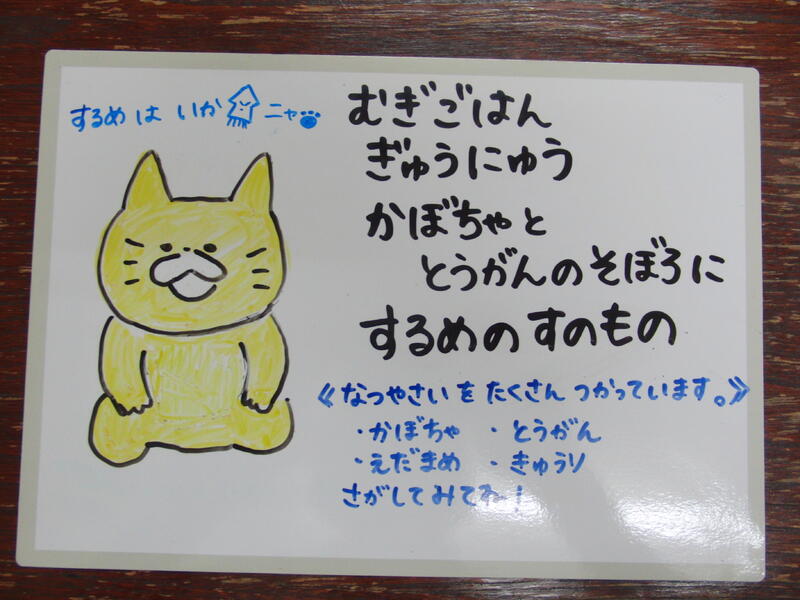 するめ は いか ニャ
むぎごはん
ぎゅうにゅう
かぼちゃと
とうがんのそぼろに
するめのすのもの
《なつやさいを たくさん つかっています。》
・かぼちゃ ・とうがん
・えだまめ ・きゅうり
さがしてみてねー！